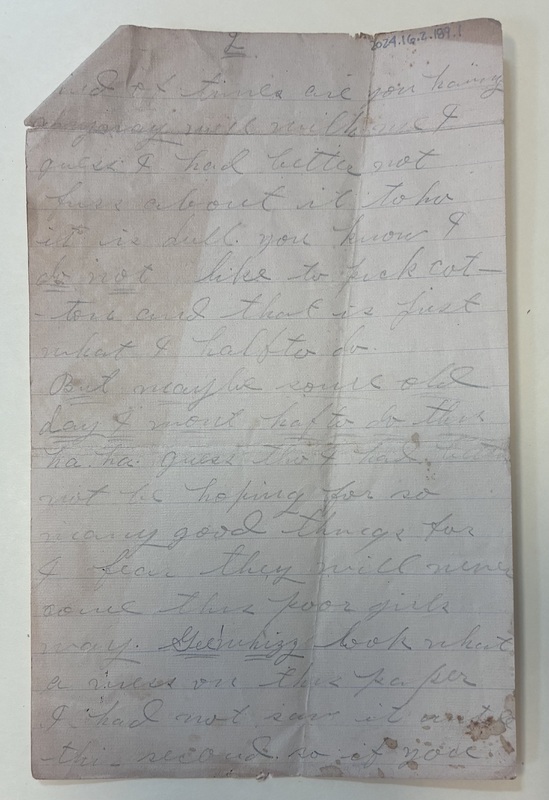 2
2024.16.2.189.1
ind of times are you having
anyway well well I
guess I had better not
fuss about it toho
it is dull. you know I
do not like to pick cot-
-ton and that is just
what I halfto do.
But maybe some old
day I wont hafto do this
ha. ha. guess tho I had better
not be hoping for so
many good things for
I fear they will never
come this poor girls
way. Geewhizz look what
a mess on this paper
I had not saw it until
this second. so if you